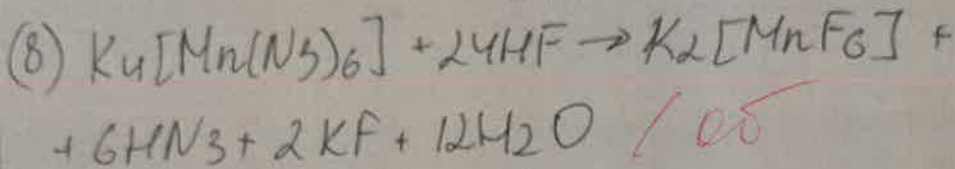 (8) K4[Mn(N3)6] + 24HF → K2[MnF6] +
+ 6HN3 + 2KF + 12H2O / 0б